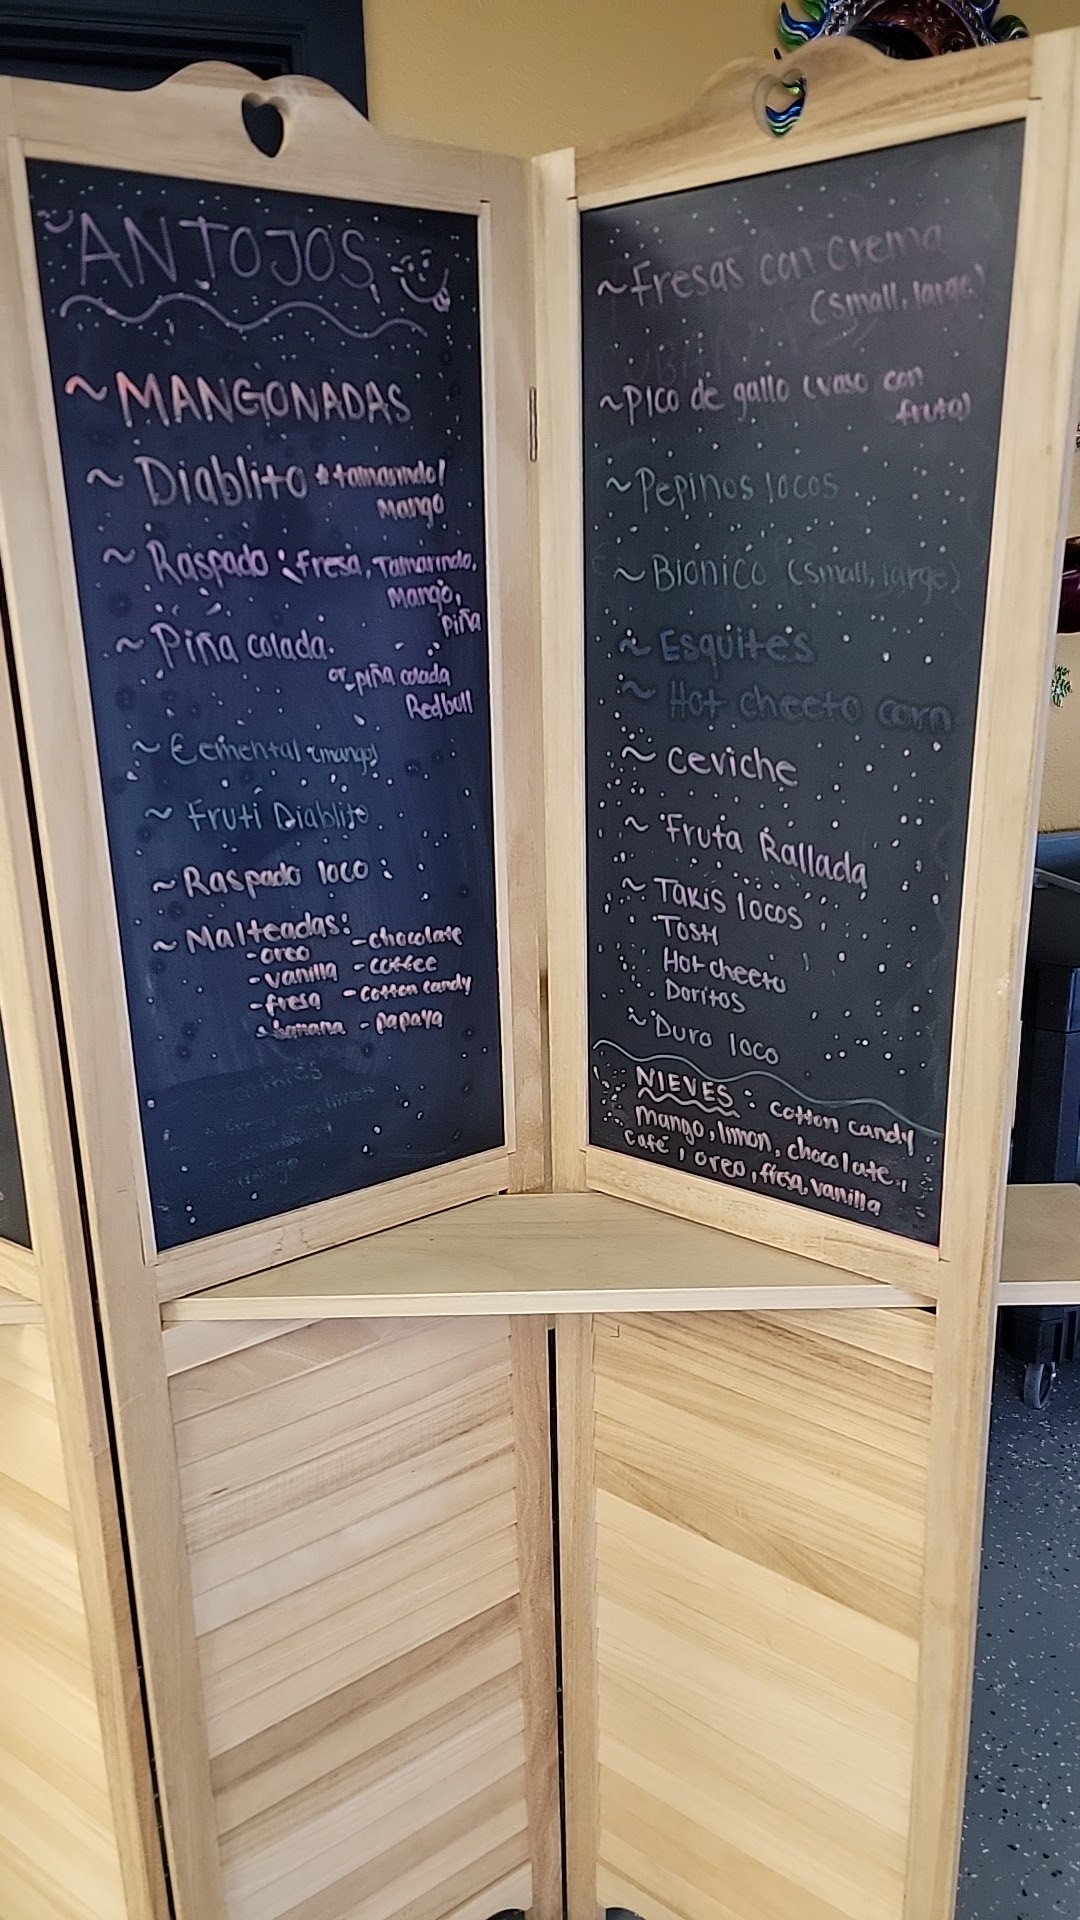 ANTOJOS
~ MANGONADAS
~ Diablito * tamarindo/
Mango
~ Raspado : Fresa, Tamarindo,
Mango,
Piña
~ Piña colada.
or piña colada
Redbull
~ (mango)
~ Fruti Diablito
~ Raspado loco :
~ Malteadas:
-oreo -chocolate
-vanilla -coffee
-fresa -cotton candy
-banana -papaya
~ Fresas con crema
(small, large)
~ Pico de gallo (vaso con
fruta)
~ Pepinos locos
~ Bionico (small, large)
~ Esquites
~ Hot cheeto corn
~ Ceviche
~ Fruta Rallada
~ Takis locos
Tosti
Hot cheeto
Doritos
~ Duro loco
NIEVES : cotton candy
Mango, limon, chocolate,
café, oreo, fresa, vanilla